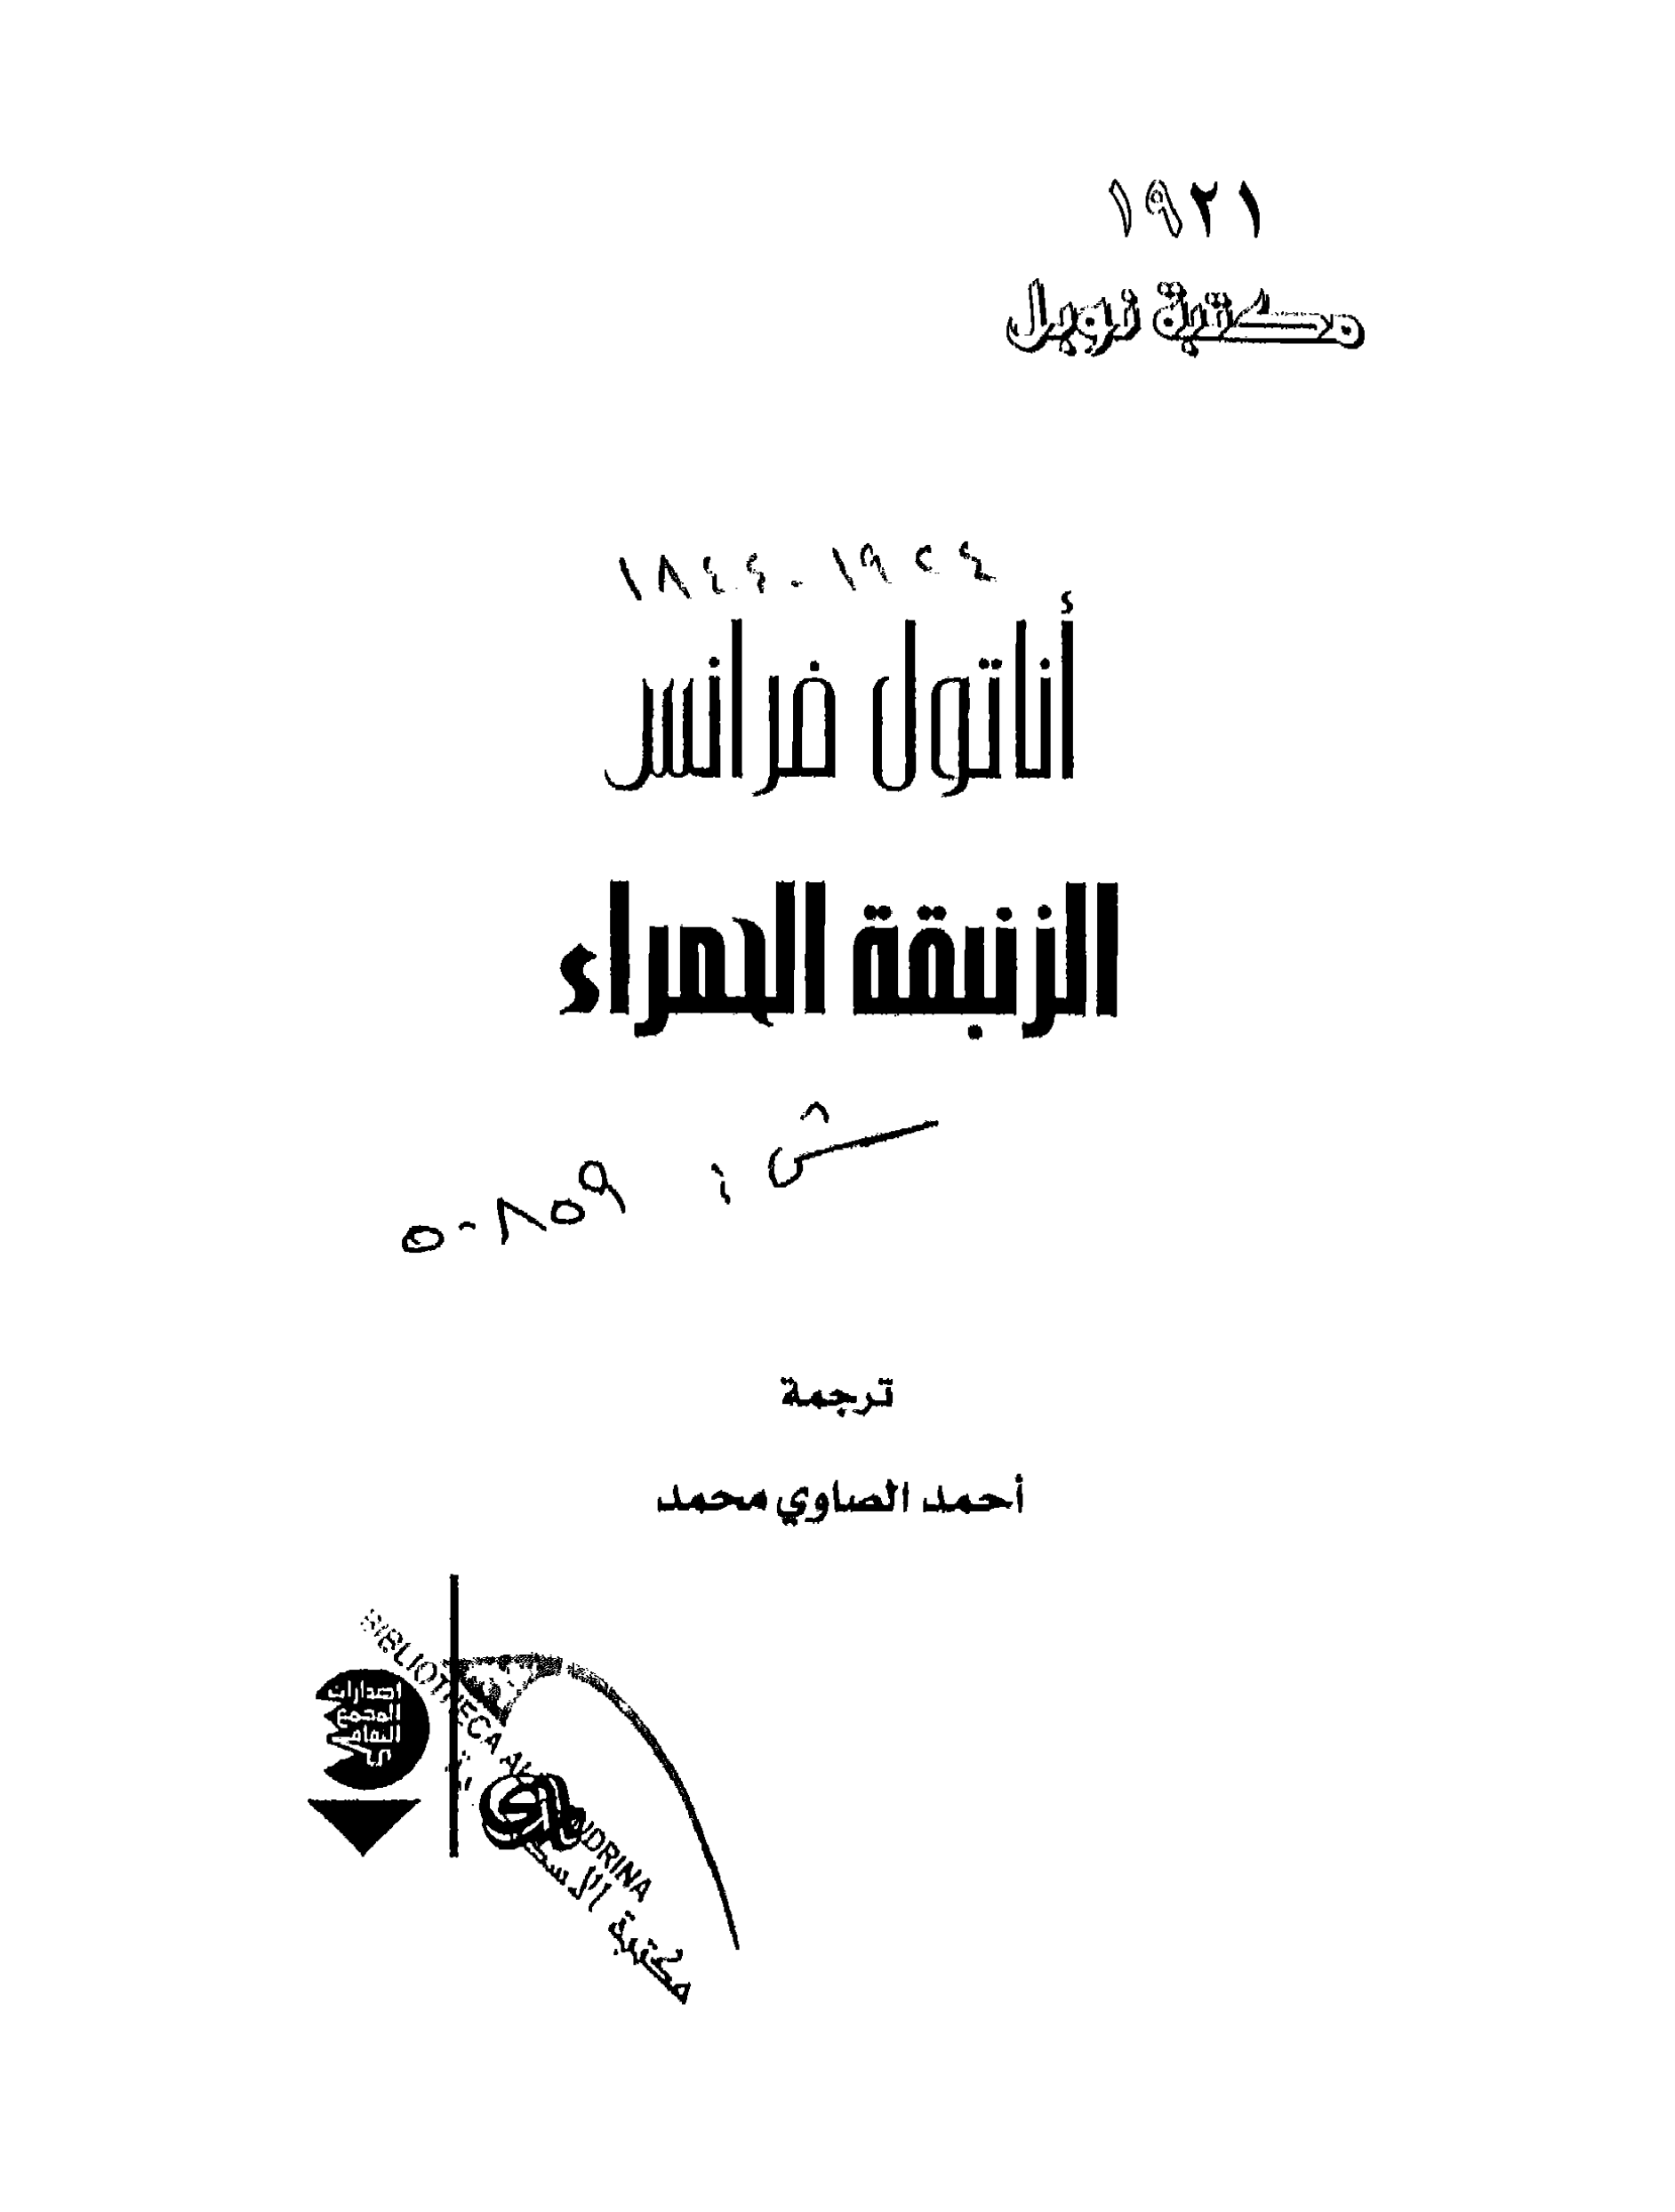 ١٩٢١
مكتبة نوبل
١٨٤٤ - ١٩٢٤
أناتول فرانس
الزنبقة الحمراء
ش: ٥٠٨٥٩
ترجمة
أحمد الصاوي محمد
إصدارات
المجمع
الثقافي
BIBLIOTHECA ALEXANDRINA
مكتبة الاسك